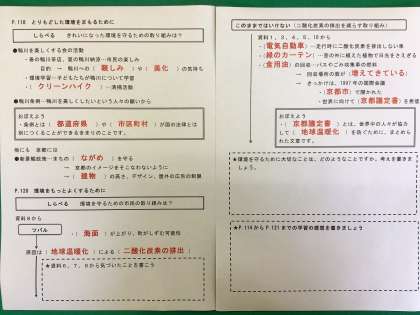 P.118 とりもどした環境をまもるために
しらべる きれいになった環境を守るための取り組みは?
●鴨川を美しくする会の活動
・春の鴨川茶店、夏の鴨川納涼…市民の楽しみ
目的 → 鴨川への( 親しみ )や( 美化 )の気持ち
・環境学習…子どもたちが鴨川について学習
・( クリーンハイク )…清掃活動
●鴨川条例…鴨川を美しくしたいという人々の願いから
おぼえよう
・条例とは・( 都道府県 )や( 市区町村 )が国の法律とは
別につくることができるきまりのことです。
他にも 京都には
●新景観政策…まちの( ながめ )を守る
→ 京都のイメージをそこなわないように
→( 建物 )の高さ、デザイン、屋外の広告の制限
P.120 環境をもっとよくするために
しらべる 環境を守るための市民の取り組みは?
資料8から
ツバル
・( 海面 )が上がり、島がしずむ可能性
原因は( 地球温暖化 )による( 二酸化炭素の排出 )
★資料6、7、8から気づいたことを書こう
このままではいけない(二酸化炭素の排出を減らす取り組み)
資料1、3、4、5、10から
・( 電気自動車 )…走行時に二酸化炭素を排出しない車
・( 緑のカーテン )…窓の外に植えた植物で日光をさえぎる
・( 食用油 )の回収…バスやごみ収集車の燃料
→ 回収場所の数が( 増えてきている )
→ きっかけは、1997年の国際会議
・( 京都市 )で開かれた
・世界に向けて( 京都議定書 )を発信
おぼえよう
・( 京都議定書 )とは、世界中の人々が協力
して( 地球温暖化 )を防ぐために、まとめら
れた文書です。
★環境を守るために大切なことは、どのようなことですか。考えを書きま
しょう。
★P.114からP.121までの学習の感想を書きましょう